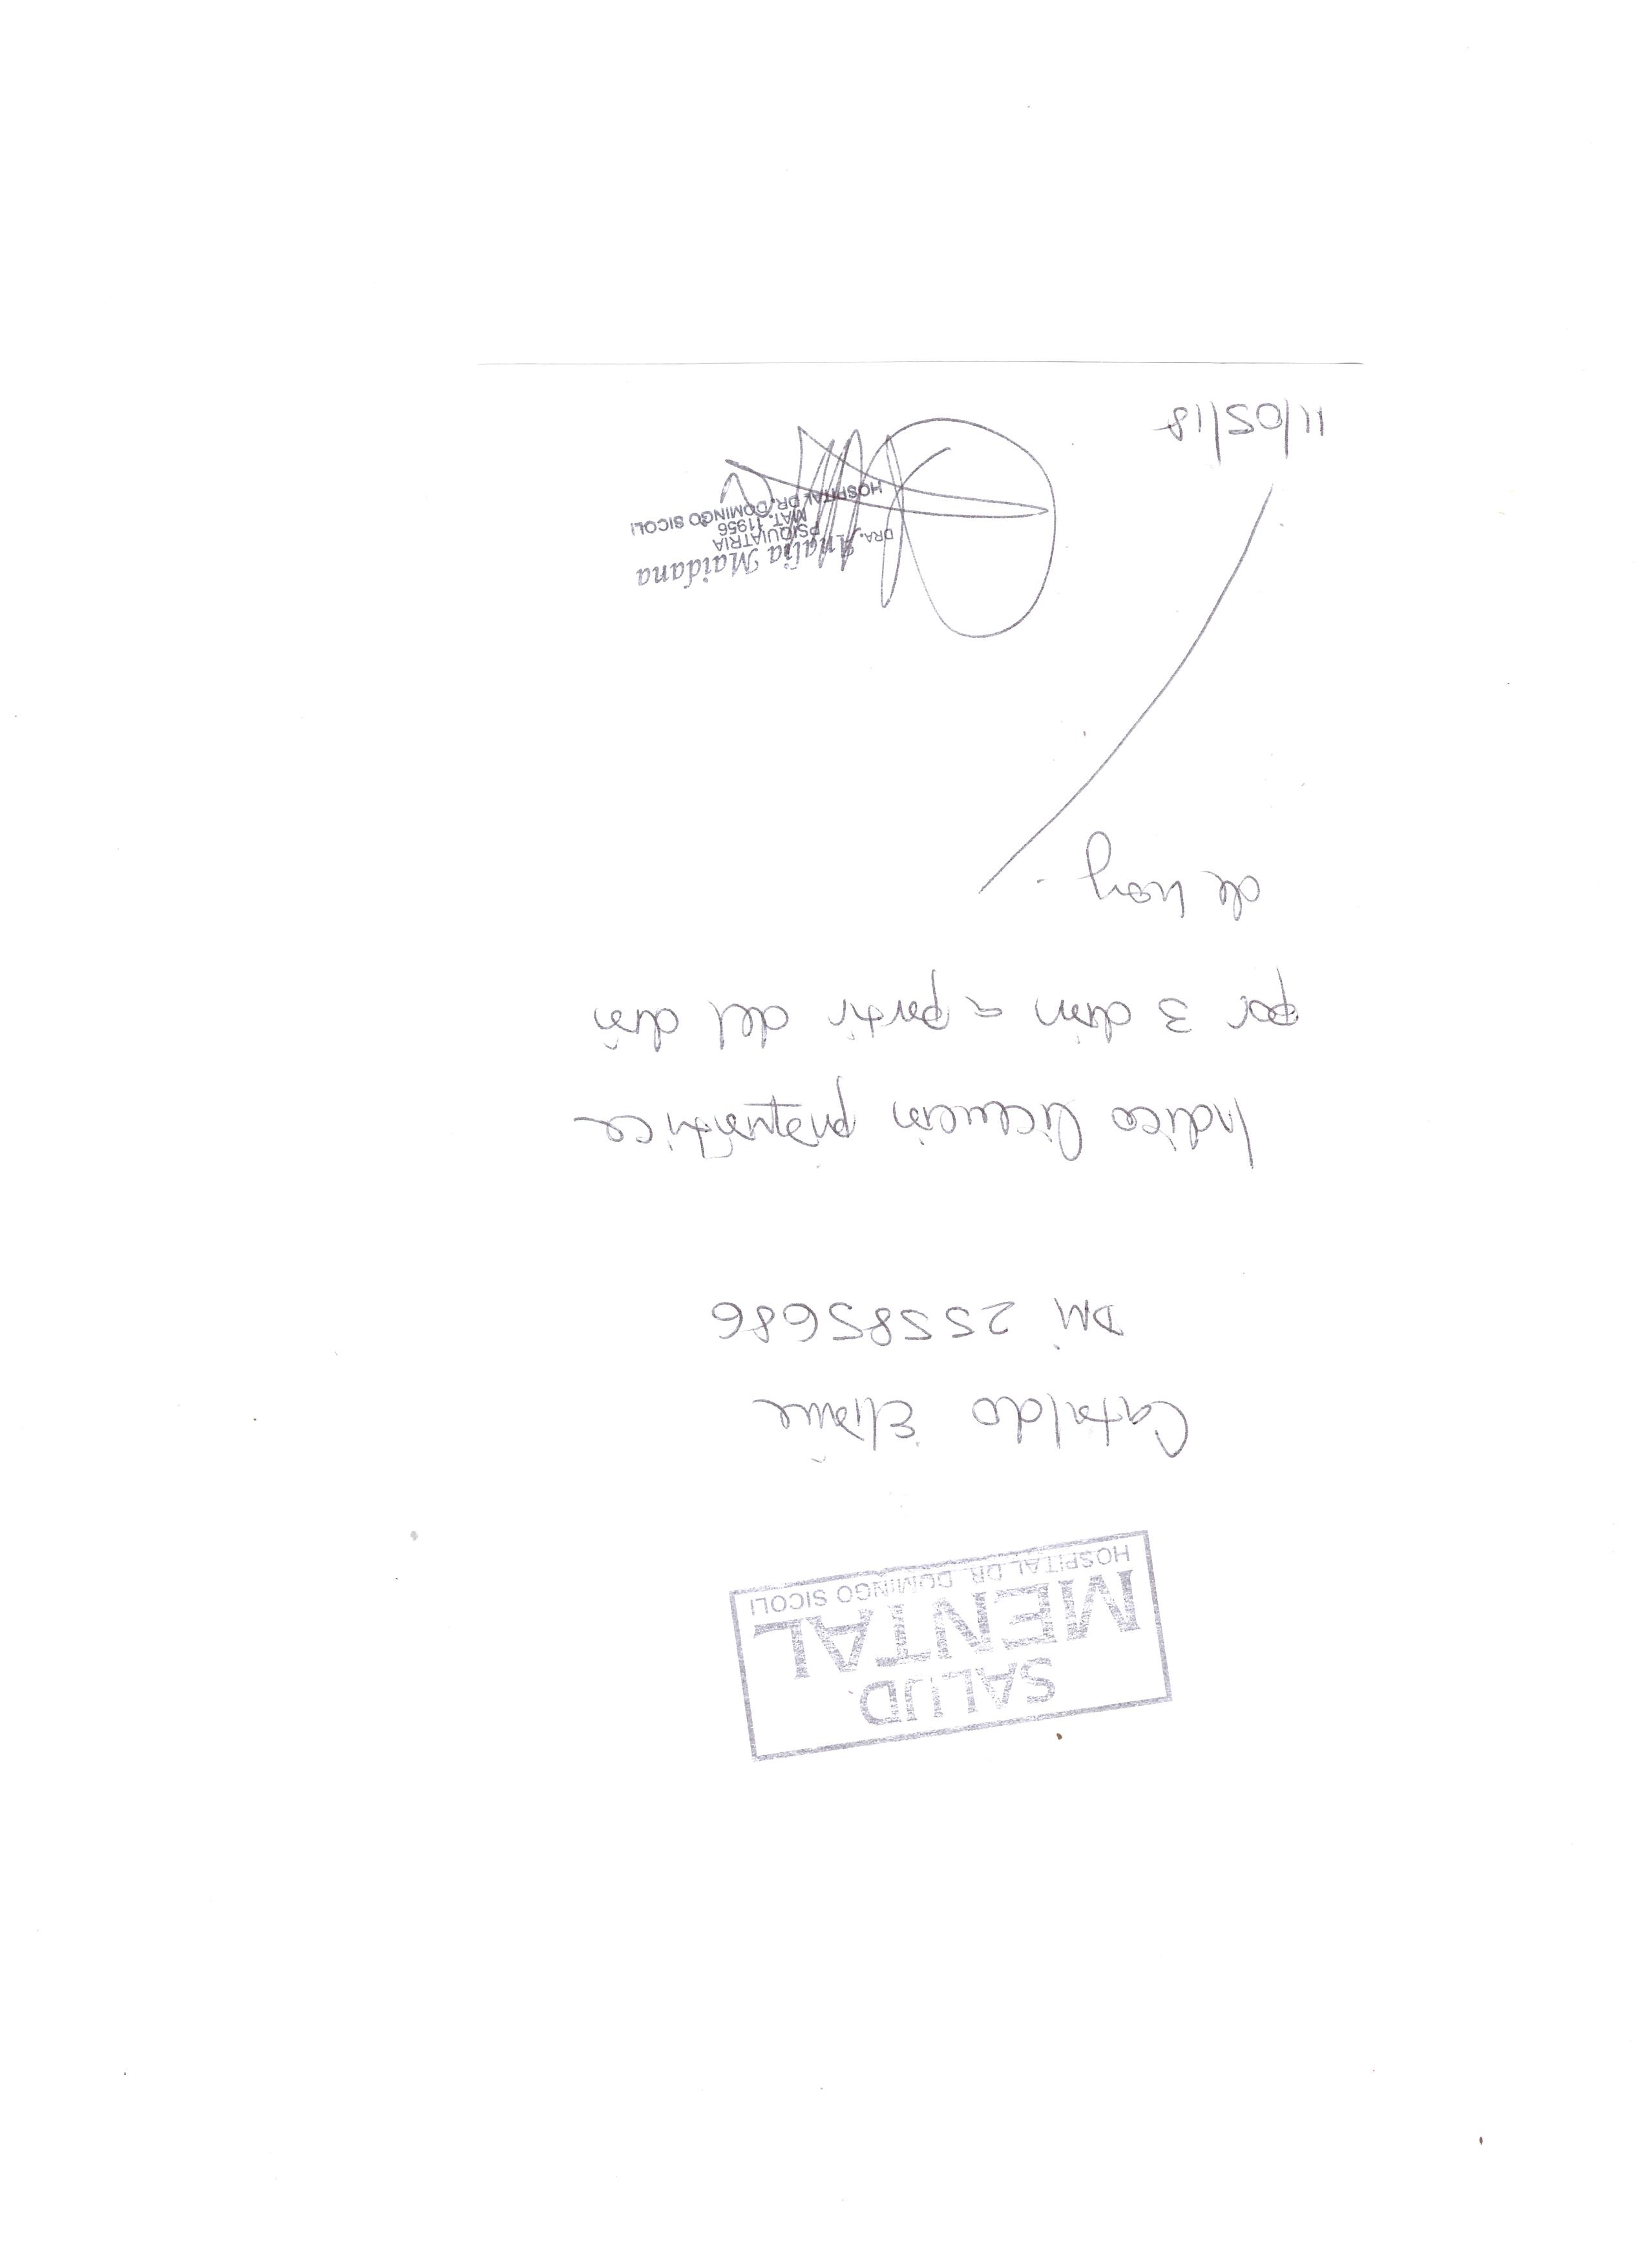 SALUD
MENTAL
HOSPITAL DR. DOMINGO SICOLI
Cataldo Eliana
DNI 25585686
Indico licencia psiquiatrica
por 3 días a partir del día
de hoy.
DRA. Analía Maidana
PSIQUIATRIA
MAT. 11956
HOSPITAL DR. DOMINGO SICOLI
11/05/18